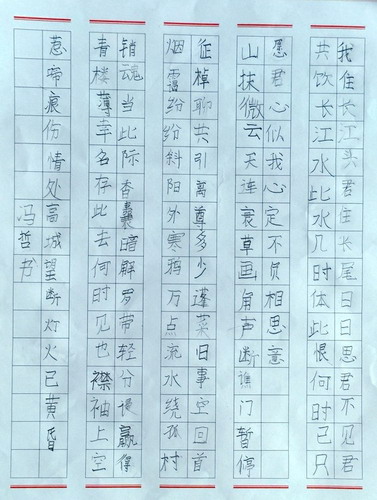 我住长江头君住长尾日日思君不见君
共饮长江水此水几时体此恨何时已只
愿君心似我心定不负相思意
山抹微云天连衰草画角声断谯门暂停
征棹聊共引离尊多少蓬菜旧事空回首
烟霭纷纷斜阳外寒鸦万点流水绕孤村
销魂当此际香囊暗罗带轻分
青楼薄幸名存此去何时见也襟袖上空
惹啼痕伤情处高城望断灯火已黄昏
冯哲书